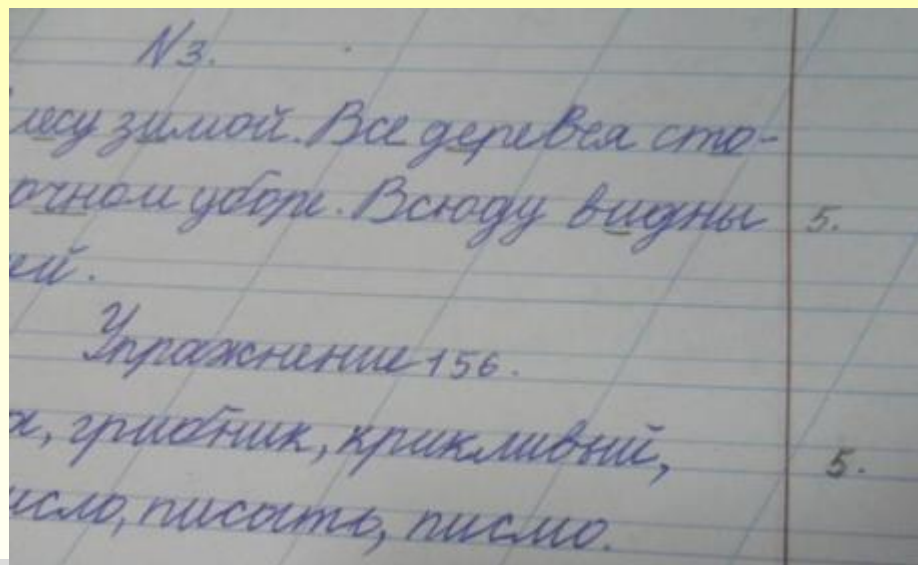 N3.
лесу зимой. Все деревея сто-
очном уборе. Всюду видны 5.
ей.
Упражнение 156.
а, грибник, крикливый, 5.
исло, писать, писмо.